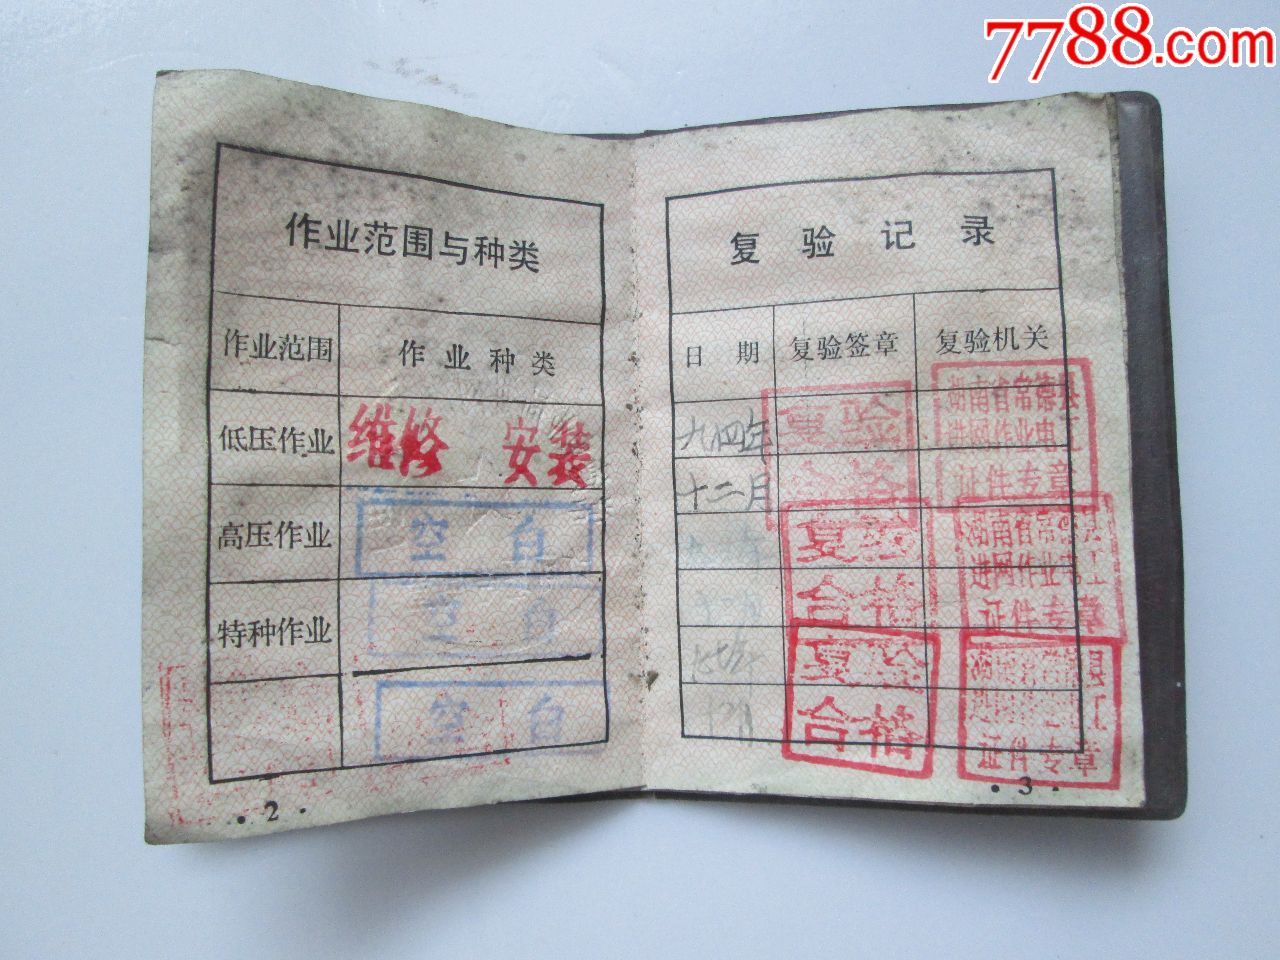 7788.com
作业范围与种类
作业范围 作业种类
低压作业 维修 安装
高压作业 空白
特种作业 空白
空白
·2·
复验记录
日期 复验签章 复验机关
九四年
十二月
复验
合格
湖南省常德县
进网作业电工
证件专章
复验
合格
湖南省常德县
进网作业电工
证件专章
九七年
十二月
复验
合格
证件专章
·3·